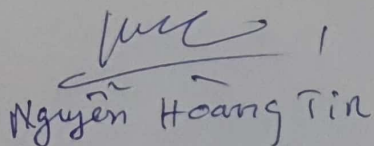 Nguyễn Hoàng Tin